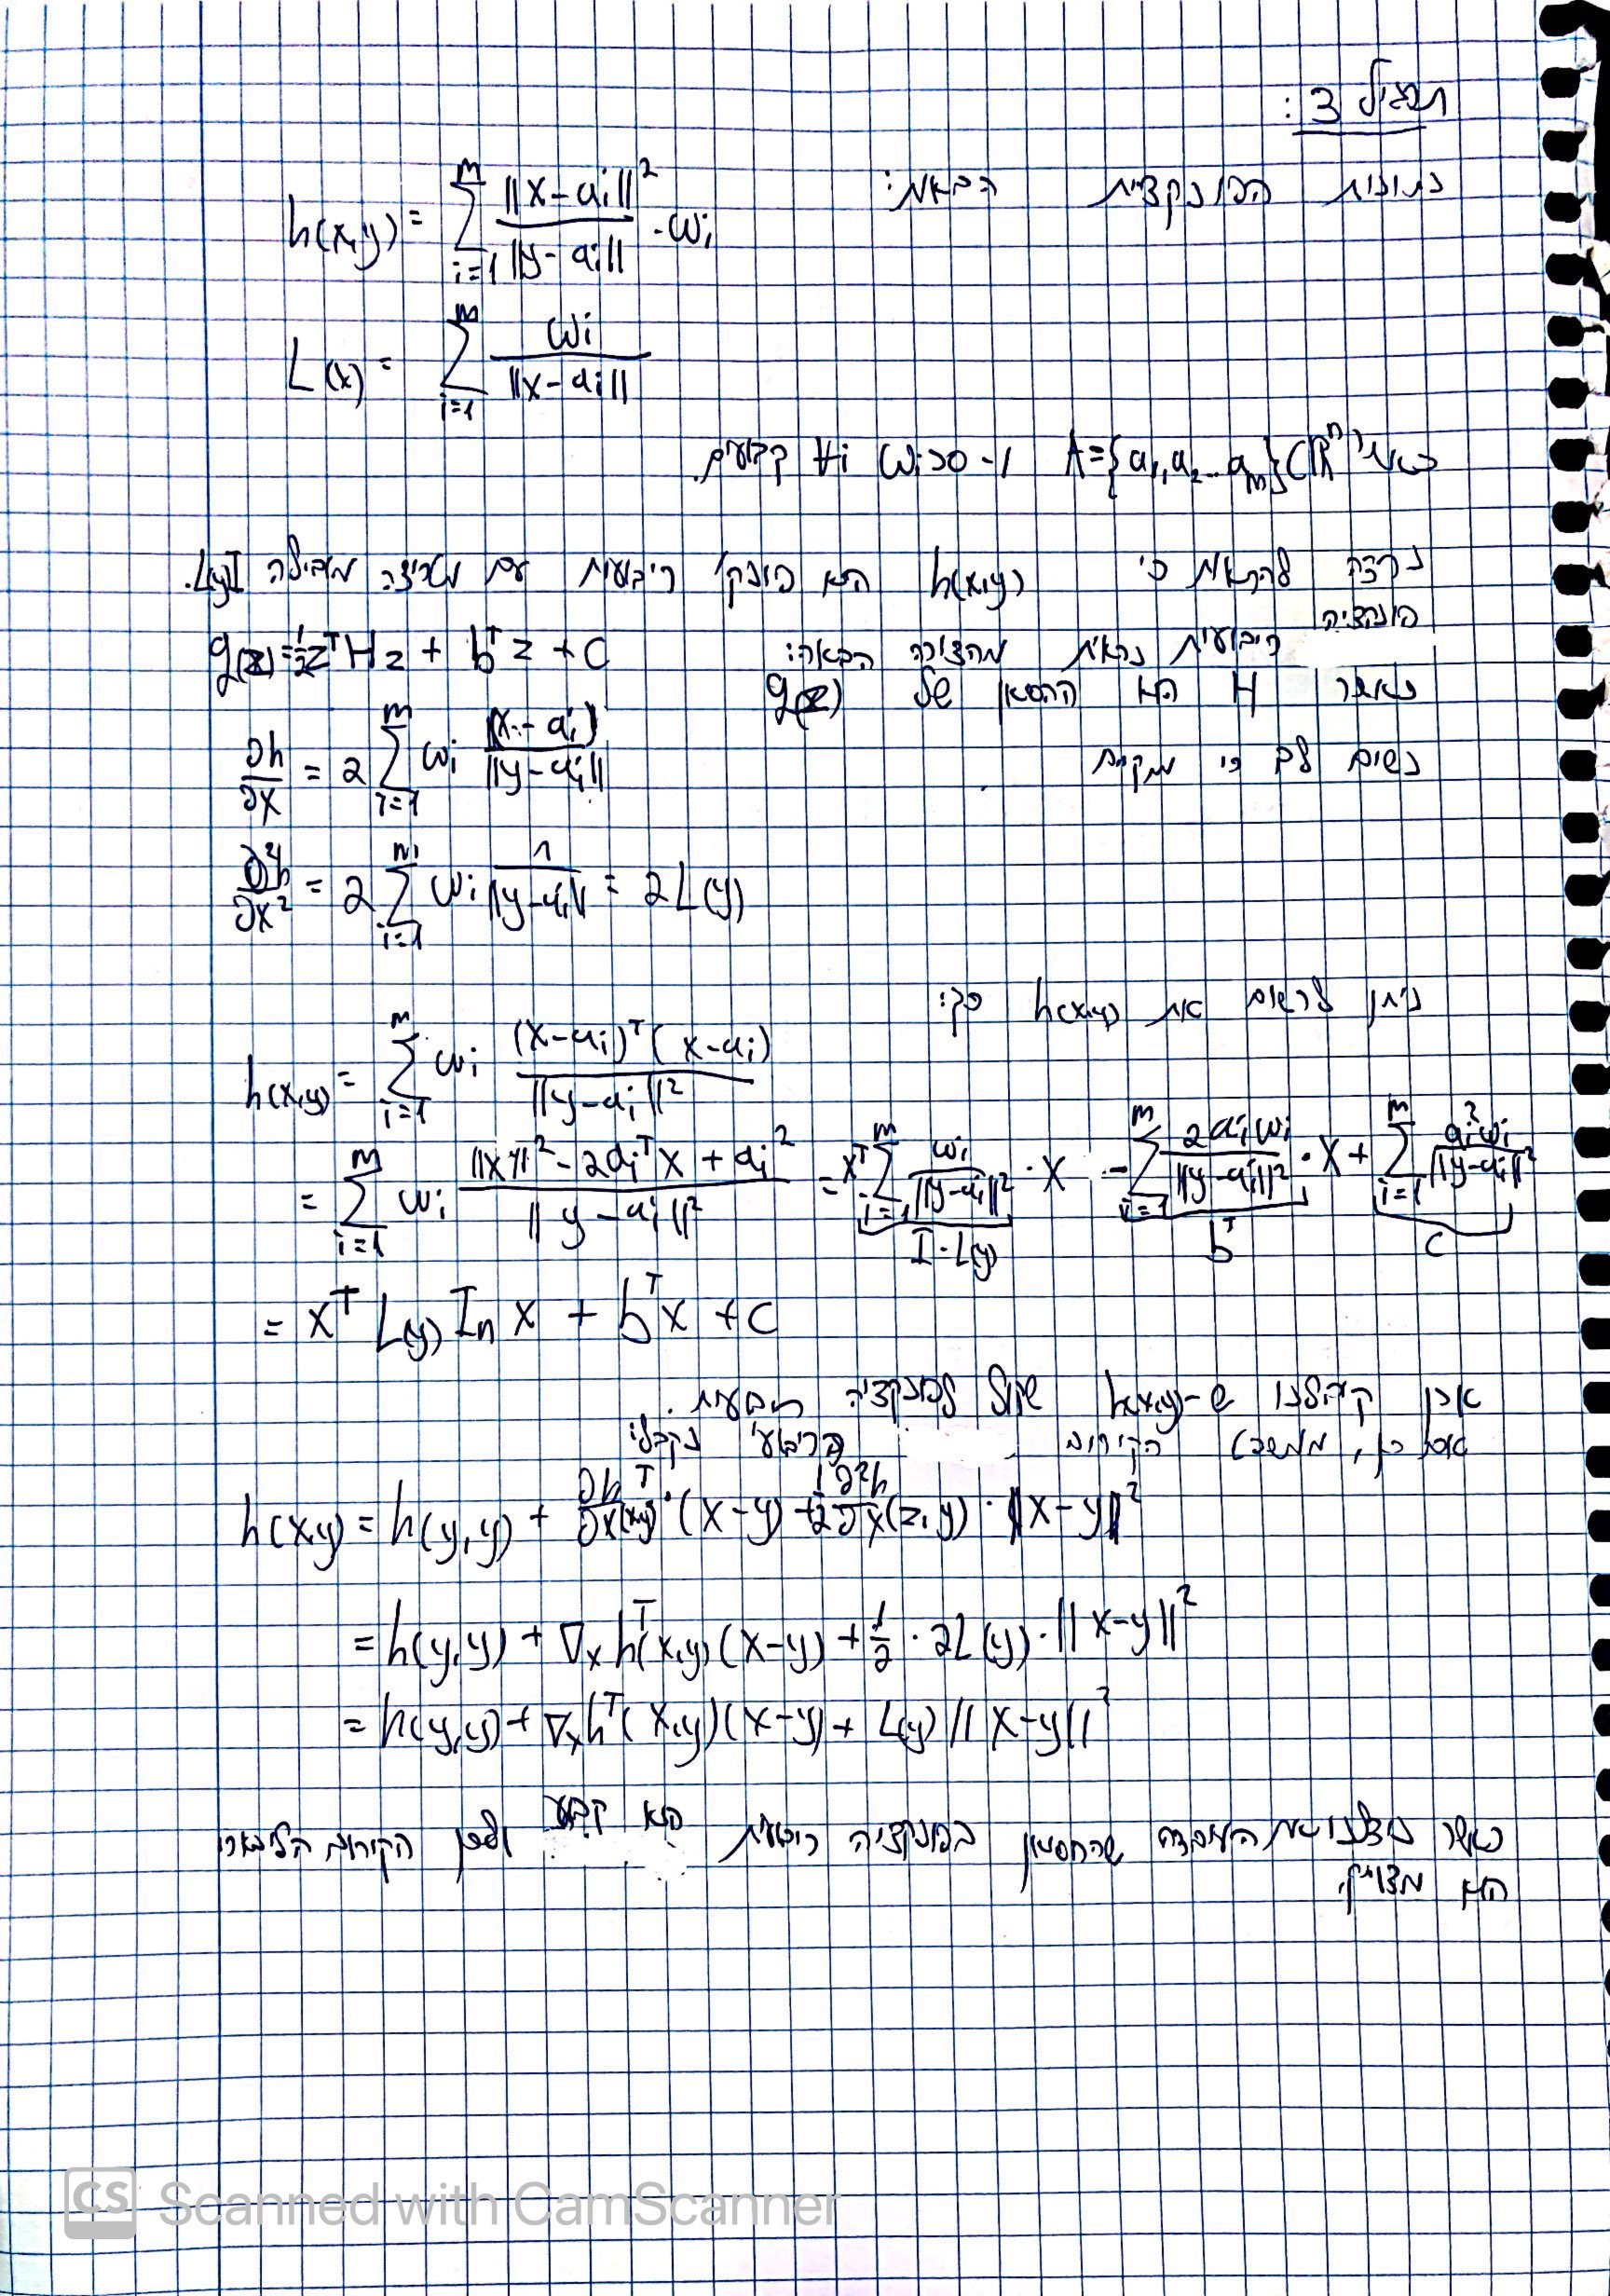 תרגיל 3:
נתונות הפונקציות הבאות:
h(x,y) = \sum_{i=1}^{m} \frac{||x-a_i||^2}{||y-a_i||} \cdot ω_i
L(x) = \sum_{i=1}^{m} \frac{ω_i}{||x-a_i||}
כאשר A={a_1,a_2...a_m}⊂ℝ^n ו- ω_i>0 ∀i קבועים.
נרצה להראות כי h(x,y) היא פונק' ריבועית עם מטריצה מובילה L(y)I.
פונקציה
ריבועית נראית מהצורה הבאה: g(z)=\frac{1}{2}z^T H z + b^T z + c
כאשר H הוא ההסיאן של g(z)
נשים לב כי מתקיים
\frac{∂h}{∂x} = 2\sum_{i=1}^{m} ω_i \frac{(x-a_i)}{||y-a_i||}
\frac{∂^2h}{∂x^2} = 2\sum_{i=1}^{m} ω_i \frac{1}{||y-a_i||} = 2L(y)
ניתן לרשום את h(x,y) כך:
h(x,y) = \sum_{i=1}^{m} ω_i \frac{(x-a_i)^T(x-a_i)}{||y-a_i||^2}
= \sum_{i=1}^{m} ω_i \frac{||x||^2-2a_i^T x+a_i^2}{||y-a_i||^2} = x^T \underbrace{\sum_{i=1}^{m} \frac{ω_i}{||y-a_i||^2}}_{I·L(y)} · x - \underbrace{\sum_{i=1}^{m} \frac{2a_iω_i}{||y-a_i||^2}}_{b^T} · x + \underbrace{\sum_{i=1}^{m} \frac{a_i^2ω_i}{||y-a_i||^2}}_{c}
= x^T L(y) I_n x + b^T x + c
אכן קיבלנו ש-h(x,y) שקול לפונקציה ריבועית.
אם כן, ממשפט הקירוב הריבועי נקבל:
h(x,y) = h(y,y) + \frac{∂h}{∂x}^T(x,y)·(x-y) + \frac{1}{2}\frac{∂^2h}{∂x}(z,y)·||x-y||^2
= h(y,y) + ∇_x h^T(x,y)(x-y) + \frac{1}{2}·2L(y)·||x-y||^2
= h(y,y) + ∇_x h^T(x,y)(x-y) + L(y)||x-y||^2
כאשר ניצלנו את העובדה שההסיאן בפונקציה ריבועית הוא קבוע ולכן הקירוב הלינארי
הוא מדוייק.
CS Scanned with CamScanner